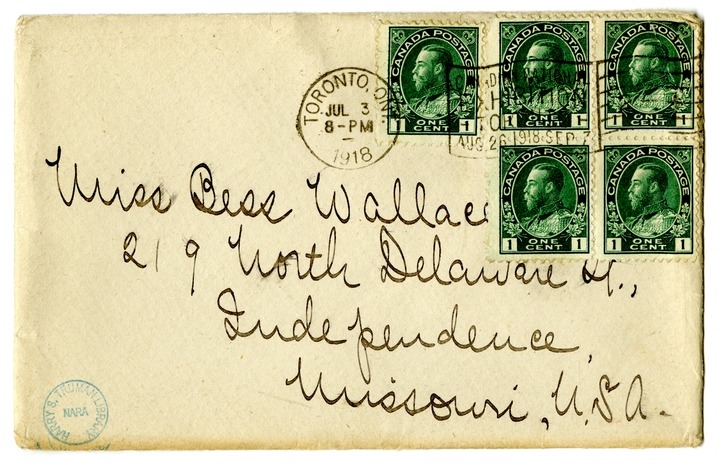 CANADA POSTAGE
1 ONE CENT 1
CANADA POSTAGE
1 ONE CENT 1
CANADA POSTAGE
ONE CENT 1
TORONTO, ONT.
JUL 3
8-PM
1918
AUG. 26 1918 SEP. 7
CANADA POSTAGE
1 ONE CENT 1
CANADA POSTAGE
1 ONE CENT 1
Miss Bess Wallace
219 North Delaware St.,
Independence
Missouri, U.S.A.
HARRY S. TRUMAN LIBRARY
NARA